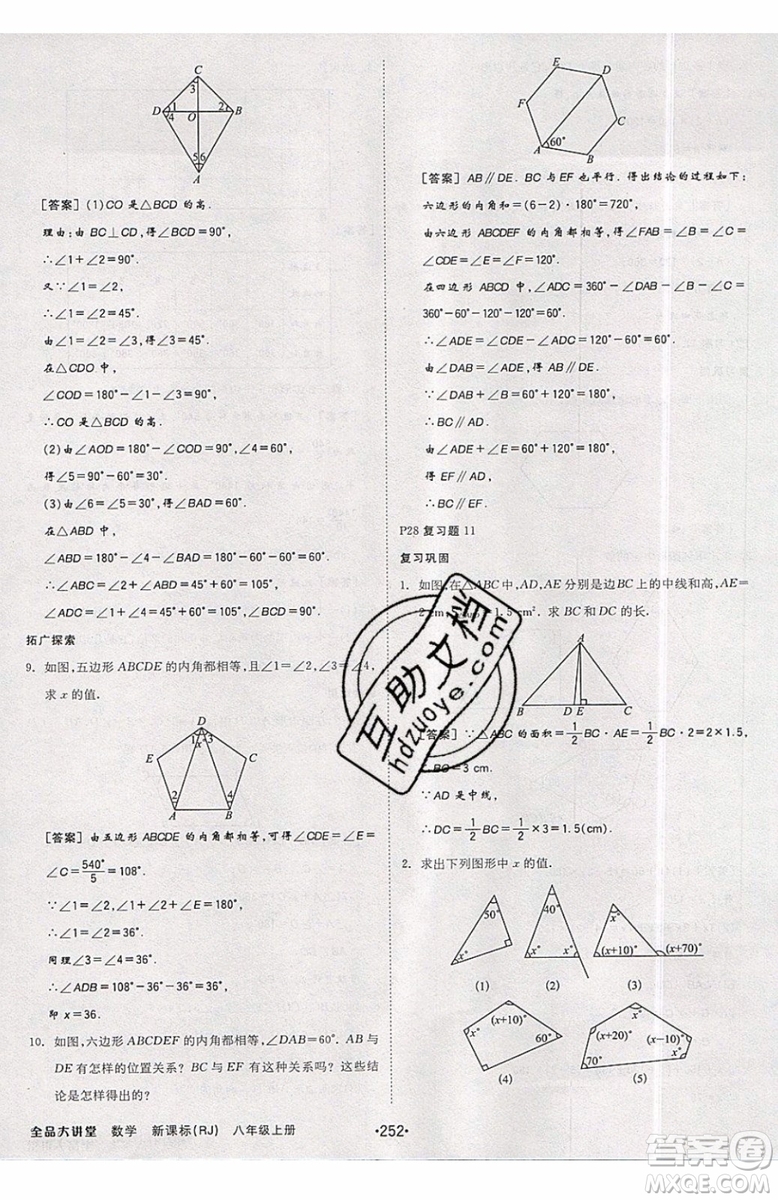 C
3
D 1 2 B
4 O
5 6
A
[答案] (1)CO 是△BCD 的高.
理由:由 BC⊥CD,得∠BCD=90°,
∴∠1+∠2=90°.
又∵∠1=∠2,
∴∠1=∠2=45°.
由∠1=∠3,得∠3=45°.
在△CDO 中,
∠COD=180°-∠1-∠3=90°,
∴CO 是△BCD 的高.
(2)由∠AOD=180°-∠COD=90°,∠4=60°,
得∠5=90°-60°=30°.
(3)由∠5=∠6=30°,得∠BAD=60°.
在△ABD 中,
∠ABD=180°-∠4-∠BAD
=180°-60°-60°=60°,
∴∠CDA=∠1+∠4=105°,
∠ABC=∠2+∠ABD=105°,
∴∠ADC=∠ABC=105°,∠DAB=60°.
拓广探索
9. 如图,五边形 ABCDE 的内角都相等,且∠1=∠2,∠3=∠4,
求 x 的值.
D
1 x 3
E C
2 4
A B
[答案] 由五边形 ABCDE 的内角都相等,可得∠CDE=∠E=
∠C=540°/5=108°.
∵∠1=∠2,∠1+∠2+∠E=180°,
∴∠1=∠2=36°.
同理∠3=∠4=36°.
∴∠ADB=108°-36°-36°=36°,
即 x=36.
10. 如图,六边形 ABCDEF 的内角都相等,∠DAB=60°. AB 与
DE 有怎样的位置关系? BC 与 EF 有这种关系吗? 这些结
论是怎样得出的?
E D
F C
A 60° B
[答案] AB∥DE. BC 与 EF 也平行. 得出结论的过程如下:
六边形的内角和=(6-2)·180°=720°,
由六边形 ABCDEF 的内角都相等,得∠FAB=∠C=
∠CDE=∠EFA=∠B=∠E=120°.
在四边形 ABCD 中,∠ADC=360°-∠DAB-∠B-∠C=
360°-60°-120°-120°=60°.
∴∠ADE=∠CDE-∠ADC=120°-60°=60°,
∴∠ADE=∠DAB,
∴AB∥DE.
由∠ADC+∠C=60°+120°=180°,
∴BC∥AD.
由∠FAD=∠FAB-∠DAB=60°,∠F=120°,
得∠F+∠FAD=180°,
∴EF∥AD,
∴BC∥EF.
P28 复习题 11
复习巩固
1. 如图,在△ABC 中,AD,AE 分别是边 BC 上的中线和高,AE=
2 cm, 1.5 cm². 求 BC 和 DC 的长.
A
B D E C
[答案] ∵△ABC 的面积=1/2BC·AE=1/2·BC·2=2×1.5,
∴BC=3 cm.
∵AD 是中线,
∴DC=1/2BC=1/2×3=1.5(cm).
2. 求出下列图形中 x 的值.
50° x° 40° x° x° x° (x+10)° (x+70)°
(1) (2) (3)
(x+10)° x° 60° (x+20)° (x-10)° 70° x°
(4) (5)
全品大讲堂 数学 新课标(RJ) 八年级上册 ·252·
互助文档
hdzuoye.com
作业精灵
MXQE.COM